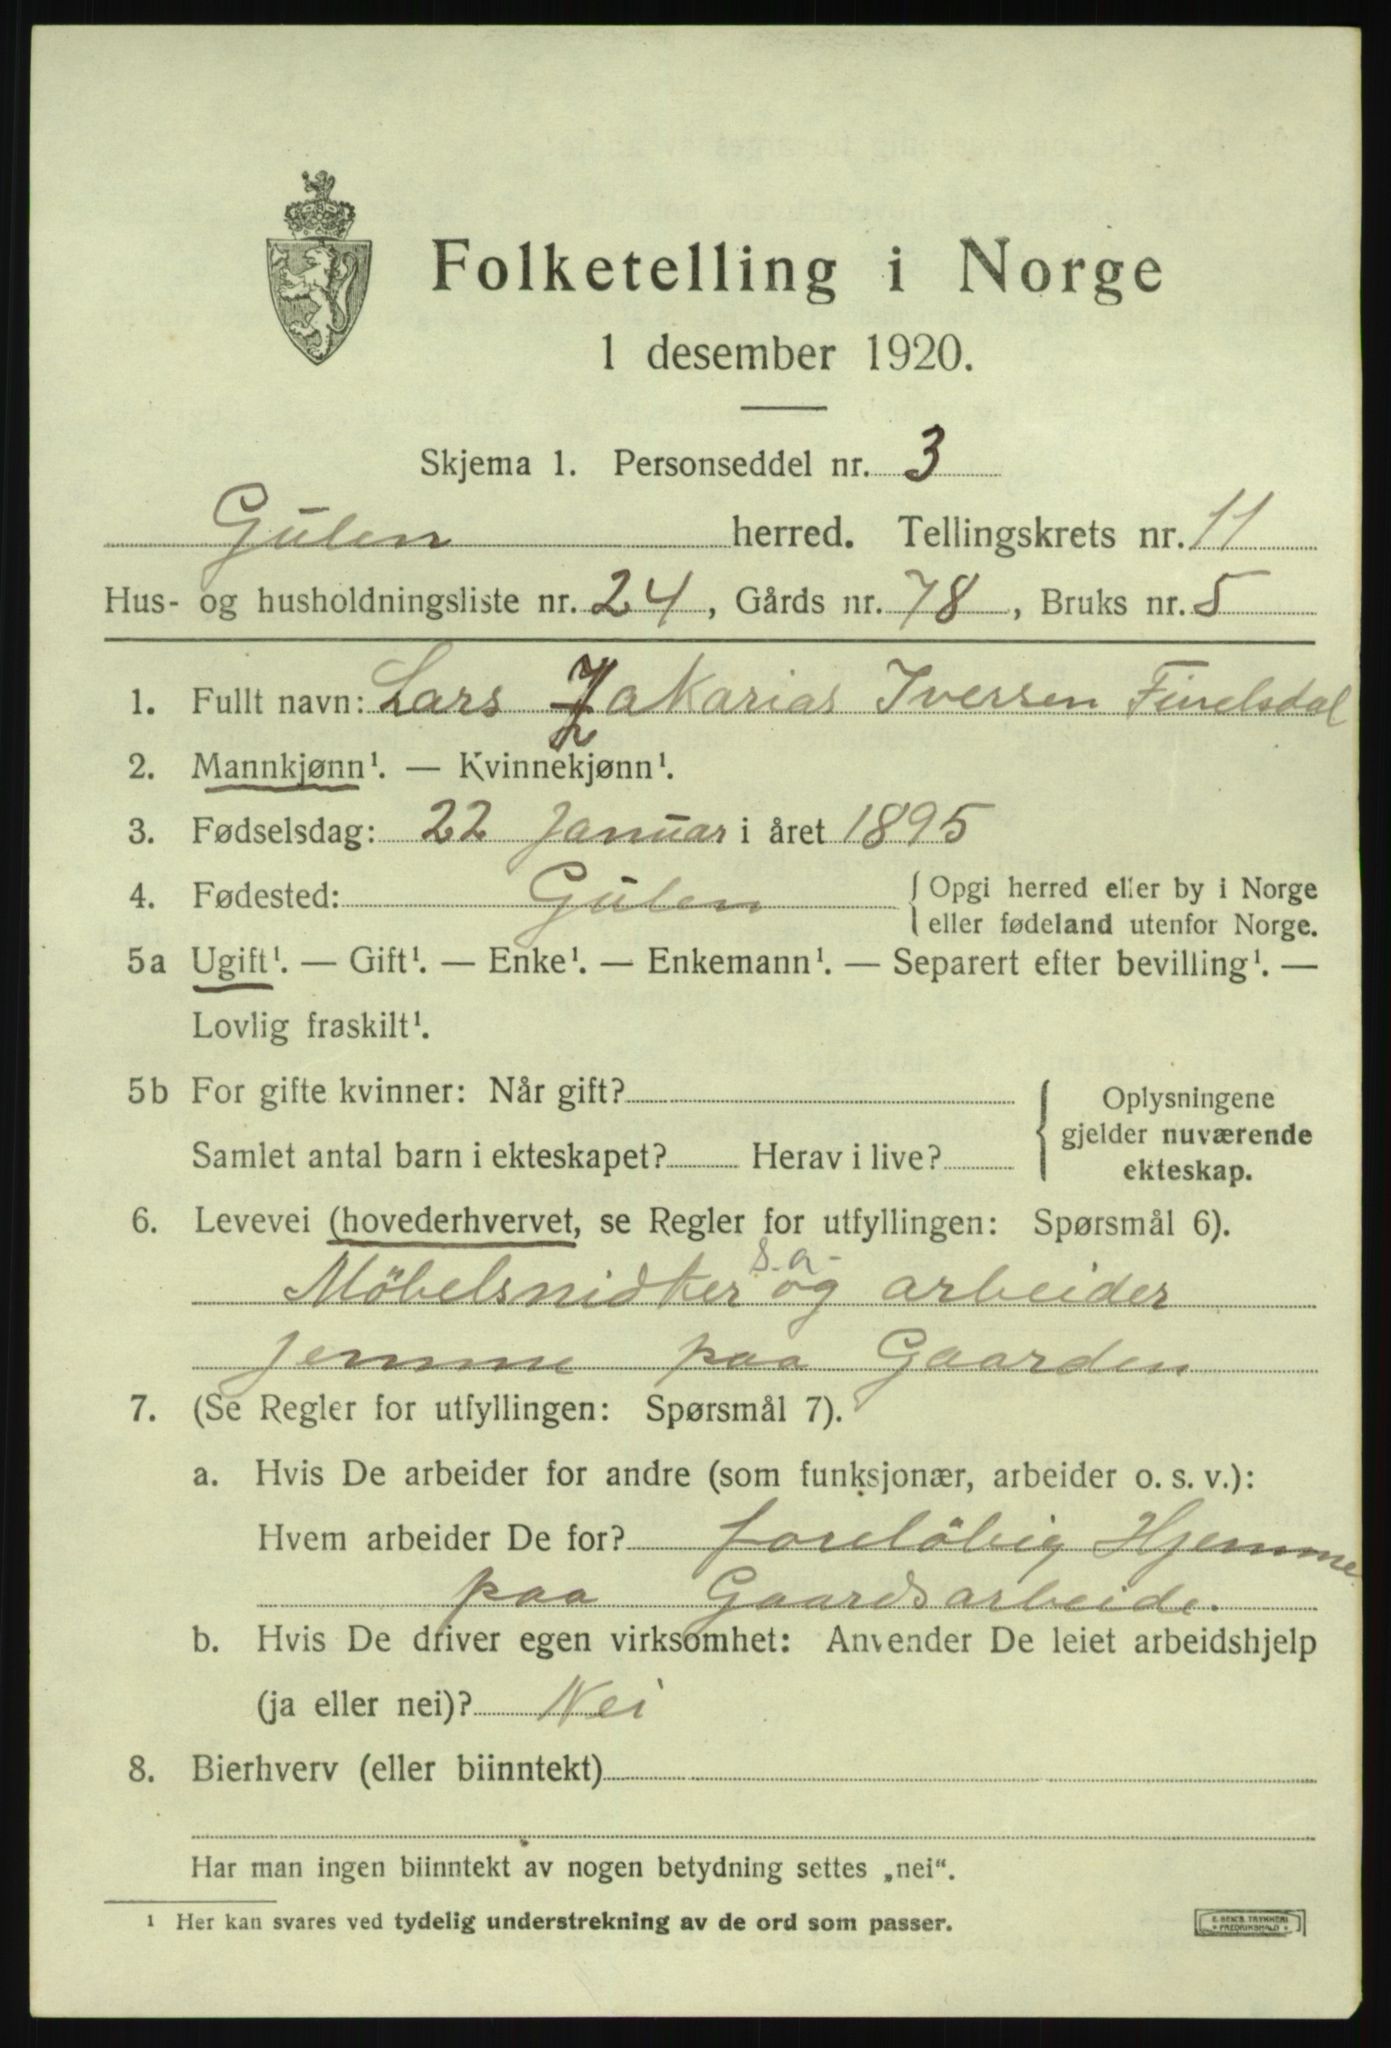 Folketelling i Norge
1 desember 1920.
Skjema 1. Personseddel nr. 3
Gülen herred. Tellingskrets nr. 11
Hus- og husholdningsliste nr. 24, Gårds nr. 78, Bruks nr. 5
1. Fullt navn: Lars Zakarias Iversen
2. Mannkjønn¹. — Kvinnekjønn¹.
3. Fødselsdag: 22 Januar i året 1895
4. Fødested: Gülen { Opgi herred eller by i Norge
eller fødeland utenfor Norge.
5a Ugift¹. — Gift¹. — Enke¹. — Enkemann¹. — Separert efter bevilling¹. —
Lovlig fraskilt¹.
5b For gifte kvinner: Når gift?
Samlet antal barn i ekteskapet? Herav i live?
{ Oplysningene
gjelder nuværende
ekteskap.
6. Levevei (hovederhvervet, se Regler for utfyllingen: Spørsmål 6).
s.a-
Möbelsnidker og arbeider
jemme paa Gaarden
7. (Se Regler for utfyllingen: Spørsmål 7).
a. Hvis De arbeider for andre (som funksjonær, arbeider o. s. v.):
Hvem arbeider De for? forelöbig Hjemme
paa Gaardsarbeide.
b. Hvis De driver egen virksomhet: Anvender De leiet arbeidshjelp
(ja eller nei)? Nei
8. Bierhverv (eller biinntekt)
Har man ingen biinntekt av nogen betydning settes „nei“.
¹ Her kan svares ved tydelig understrekning av de ord som passer.
E. SEM'S TRYKKERI
FREDRIKSHALD